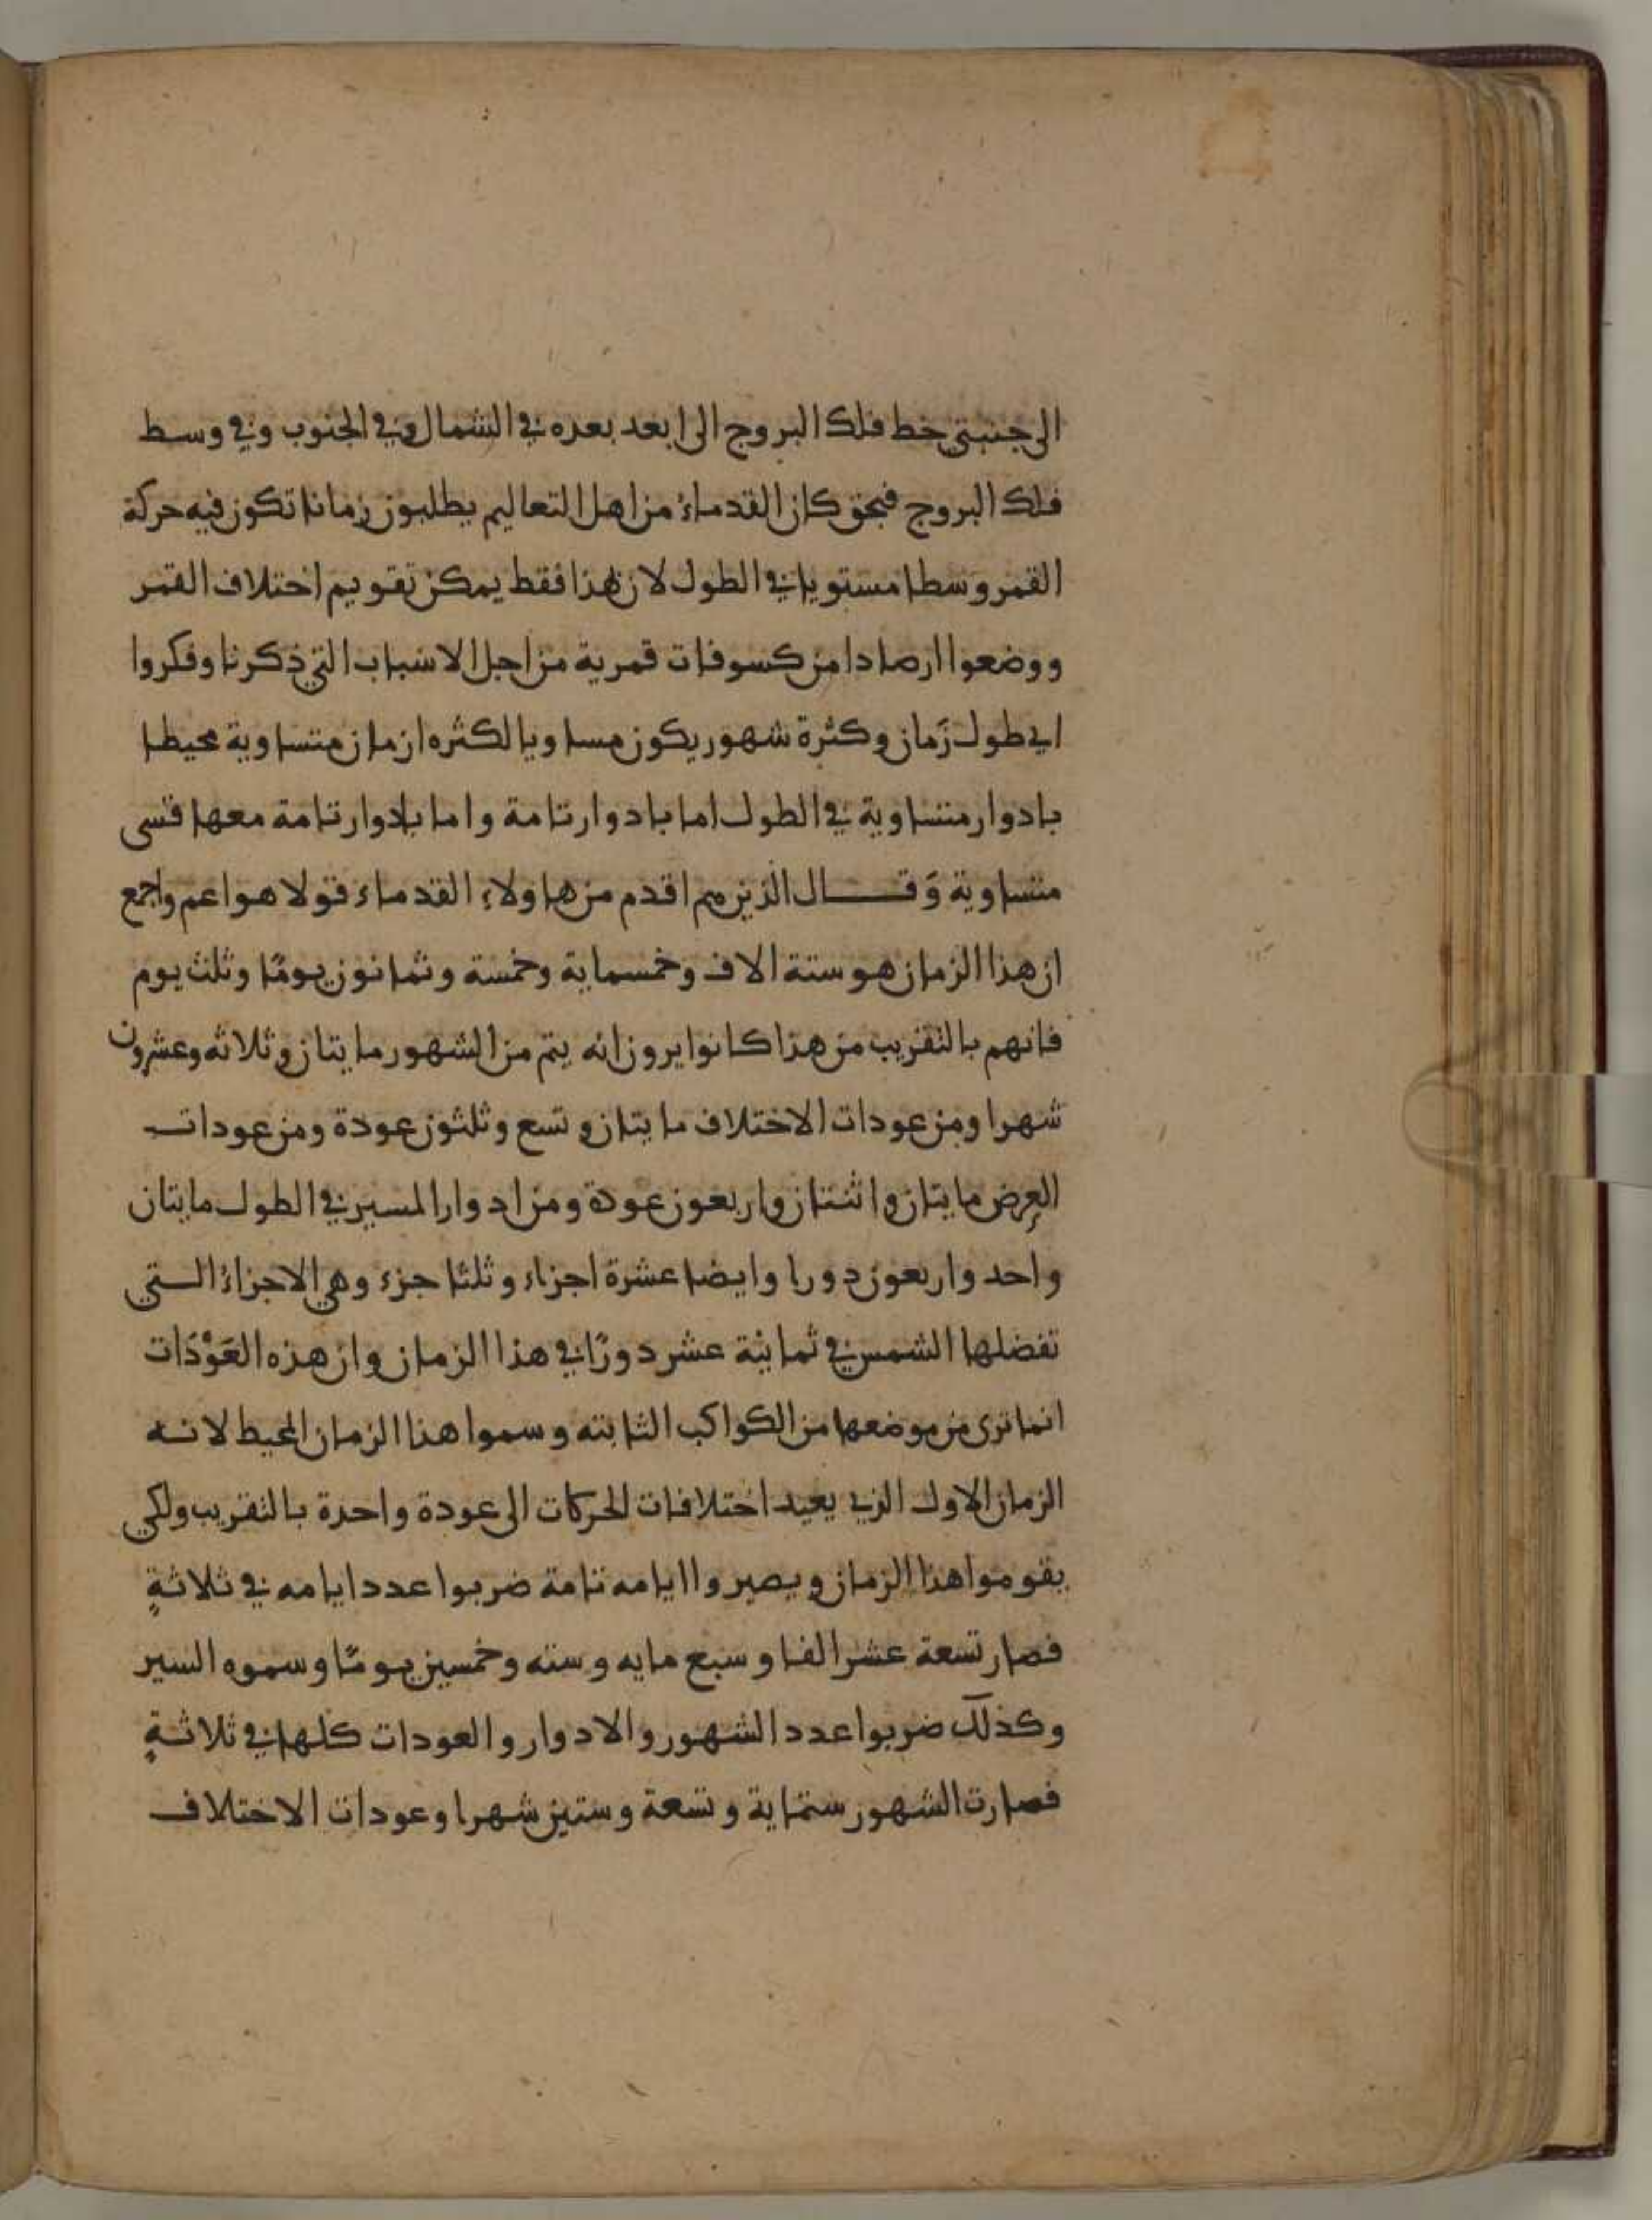 الى جنبتي خط فلك البروج الى ابعد بعده في الشمال وفي الجنوب وفي وسط
فلك البروج فبحق كان القدماء من اهل التعاليم يطلبون زمانا تكون فيه حركة
القمر وسطا مستويا في الطول لان بهذا فقط يمكن تقويم اختلاف القمر
ووضعوا ارصادا من كسوفات قمرية من اجل الاسباب التي ذكرنا وفكروا
اي طول زمان وكثرة شهور يكون مساويا لكثره ازمان متساوية محيطا
بادوار متساوية في الطول اما بادوار تامة واما بادوار تامة معها قسي
متساوية وَقال الذين هم اقدم من هاولاء القدماء قولا هو اعم واجمع
ان هذا الزمان هو ستة الاف وخمسماية وخمسة وثمانون يومًا وثلث يوم
فانهم بالتقريب من هذا كانوا يرون انه يتم من الشهور مايتان وثلاثه وعشرون
شهرا ومن عودات الاختلاف مايتان وتسع وثلثون عودة ومن عودات
العرض مايتان واثنتان واربعون عودة ومن ادوار المسير في الطول مايتان
واحد واربعون دورا وايضا عشرة اجزاء وثلثا جزء وهي الاجزاء التي
تفضلها الشمس في ثمانية عشر دورًا في هذا الزمان وان هذه العَوْدَات
انما ترى من موضعها من الكواكب الثابته وسموا هذا الزمان المحيط لانه
الزمان الاول الذي يعيد اختلافات الحركات الى عودة واحدة بالتقريب ولكي
يقوموا هذا الزمان ويصيروا ايامه تامة ضربوا عدد ايامه في ثلاثةٍ
فصار تسعة عشر الفا وسبع مايه وسته وخمسين يومًا وسموه السير
وكذلك ضربوا عدد الشهور والادوار والعودات كلها في ثلاثةٍ
فصارت الشهور ستماية وتسعة وستين شهرا وعودات الاختلاف